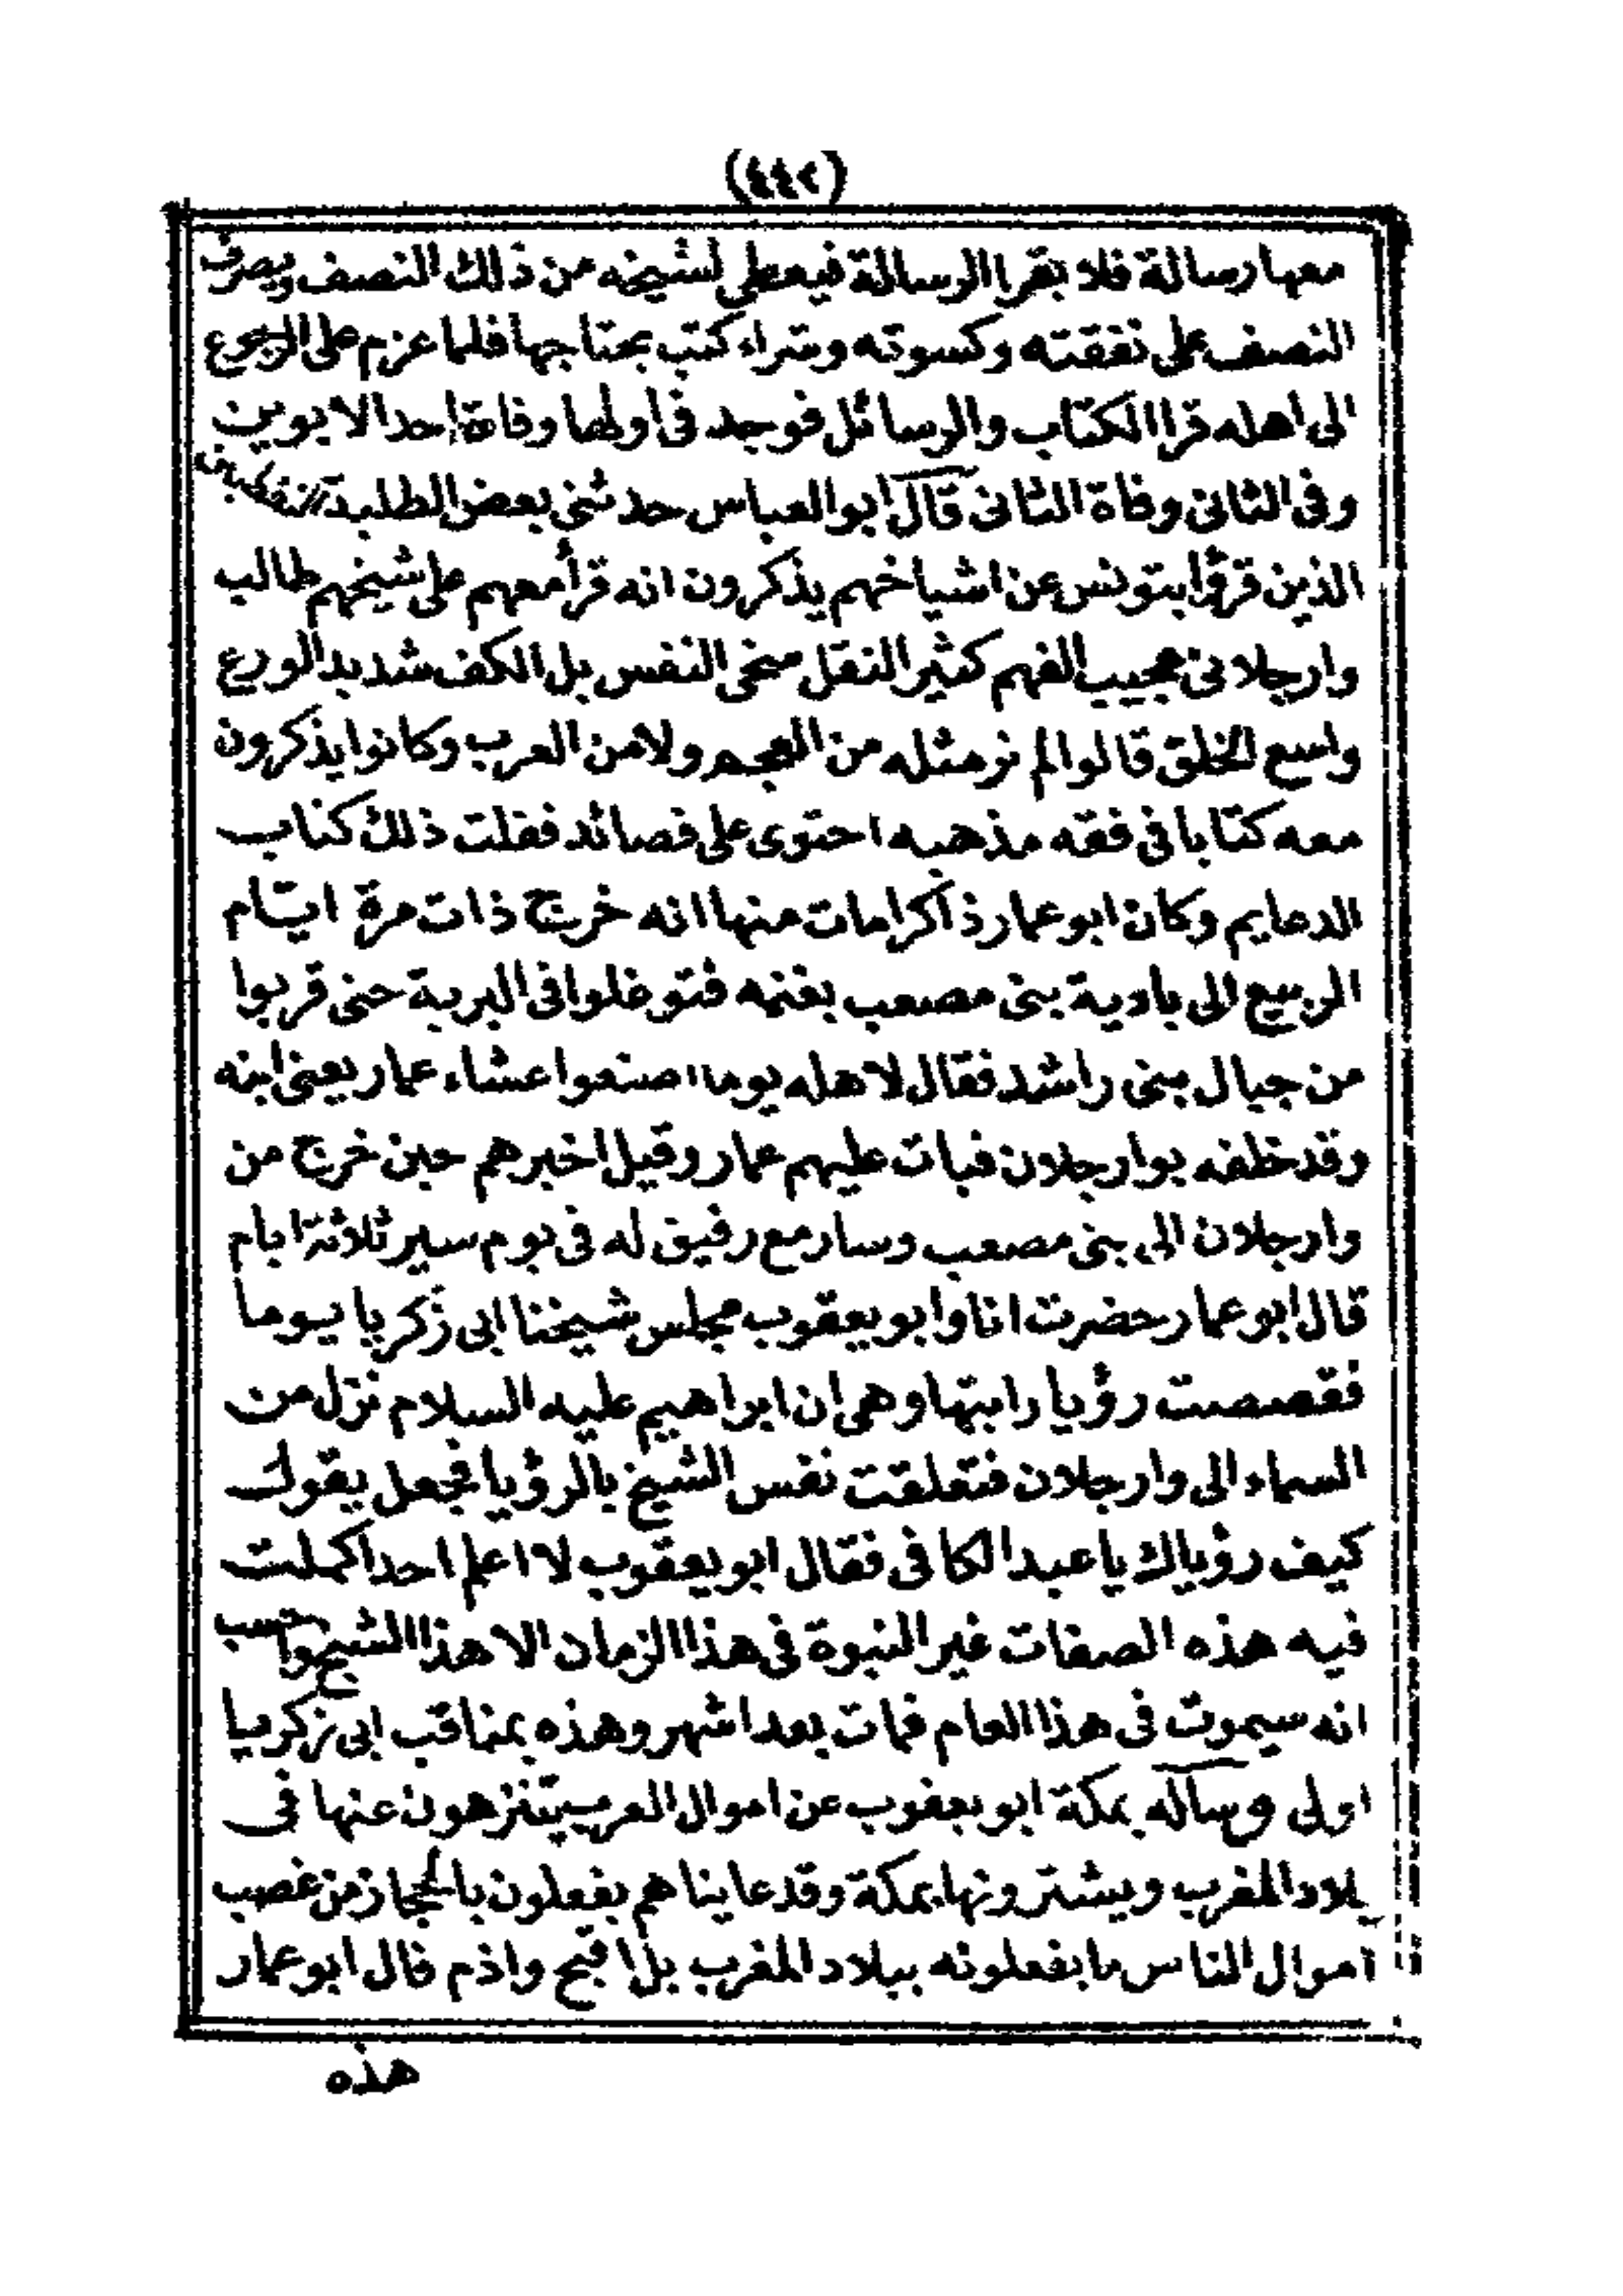 (٤٤٢)
معها رسالة فلا يقرا الرسالة فيعطى لشيخه من ذلك النصف ويصرف
النصف على نفقته وكسوته وشراء كتب يحتاجها فلما عزم على الرجوع
الى اهله قرا الكتاب والرسائل فوجد فى اولها وفاة احد الابوين
وفى الثانى وفاة الثانى قال ابو العباس حدثنى بعض الطلبة
الذين قرؤا بتونس عن اشياخهم يذكرون انه قرأ معهم على شيخهم طالب
وارجلانى عجيب الفهم كثير النقل سخى النفس بل الكف شديد الورع
واسع الخلق قالوا لم نر مثله من العجم ولا من العرب وكانوا يذكرون
معه كتابا فى فقه مذهبه احتوى على قصائد فقلت ذلك كتاب
الدعايم وكان ابو عمار ذا كرامات منها انه خرج ذات مرة ايام
الربيع الى بادية بنى مصعب بغنمه فتوغلوا فى البرية حتى قربوا
من جبال بنى راشد فقال لاهله يوما اصنعوا عشاء عمار يعنى ابنه
وقد خلفه بوارجلان فبات عليهم عمار وقيل اخبرهم حين خرج من
وارجلان الى بنى مصعب وسار مع رفيق له فى يوم سير ثلاثة ايام
قال ابو عمار حضرت انا وابو يعقوب مجلس شيخنا ابى زكريا يوما
فقصصت رؤيا رايتها وهى ان ابراهيم عليه السلام نزل من
السماء الى وارجلان فتعلقت نفس الشيخ بالرؤيا فجعل يقول
كيف رؤياك يا عبد الكافى فقال ابو يعقوب لا اعلم احدا كملت
فيه هذه الصفات غير النبوة فى هذا الزمان الا هذا الشيخ واحسب
انه سيموت فى هذا العام فمات بعد اشهر وهذه بمناقب ابى زكريا
اولى وساله بمكة ابو يعقوب عن اموال العرب يتنزهون عنها فى
بلاد المغرب ويشترونها بمكة وقد عايناهم يفعلون بالحجاز من غصب
اموال الناس ما يفعلونه ببلاد المغرب بل اقبح واذم قال ابو عمار
هذه